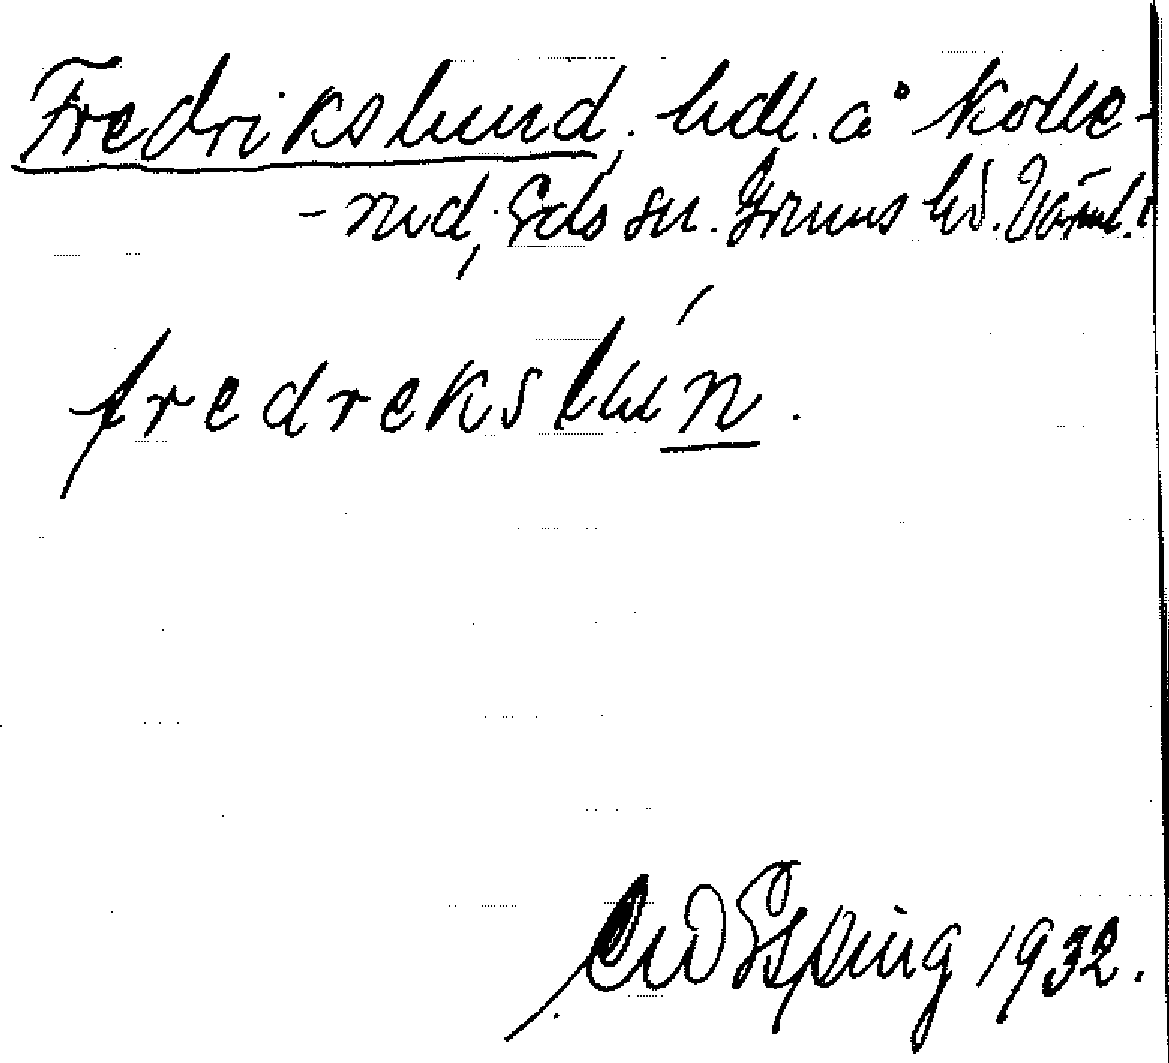 Fredrikslund, hdl. å Kolle-
-rud, Eds sn. Grums hd. Värml.
fredrekslun.
Espring 1932.